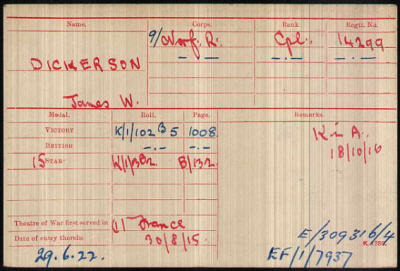 Name. Corps. Rank Regtl. No.
9/Norf: R: Cpl. 14299
DICKERSON
-·- -·- -·-
James W.
Medal. Roll. Page. Remarks.
VICTORY K/1/102 B 5 1008. K in A.
BRITISH -·- -·- 18/10/16
15 STAR K/1/3B2 B/132
Theatre of War first served in (1) France E/309316/4
Date of entry therein 30/8/15. K. 1380.
29.6.22. EF/1/7937